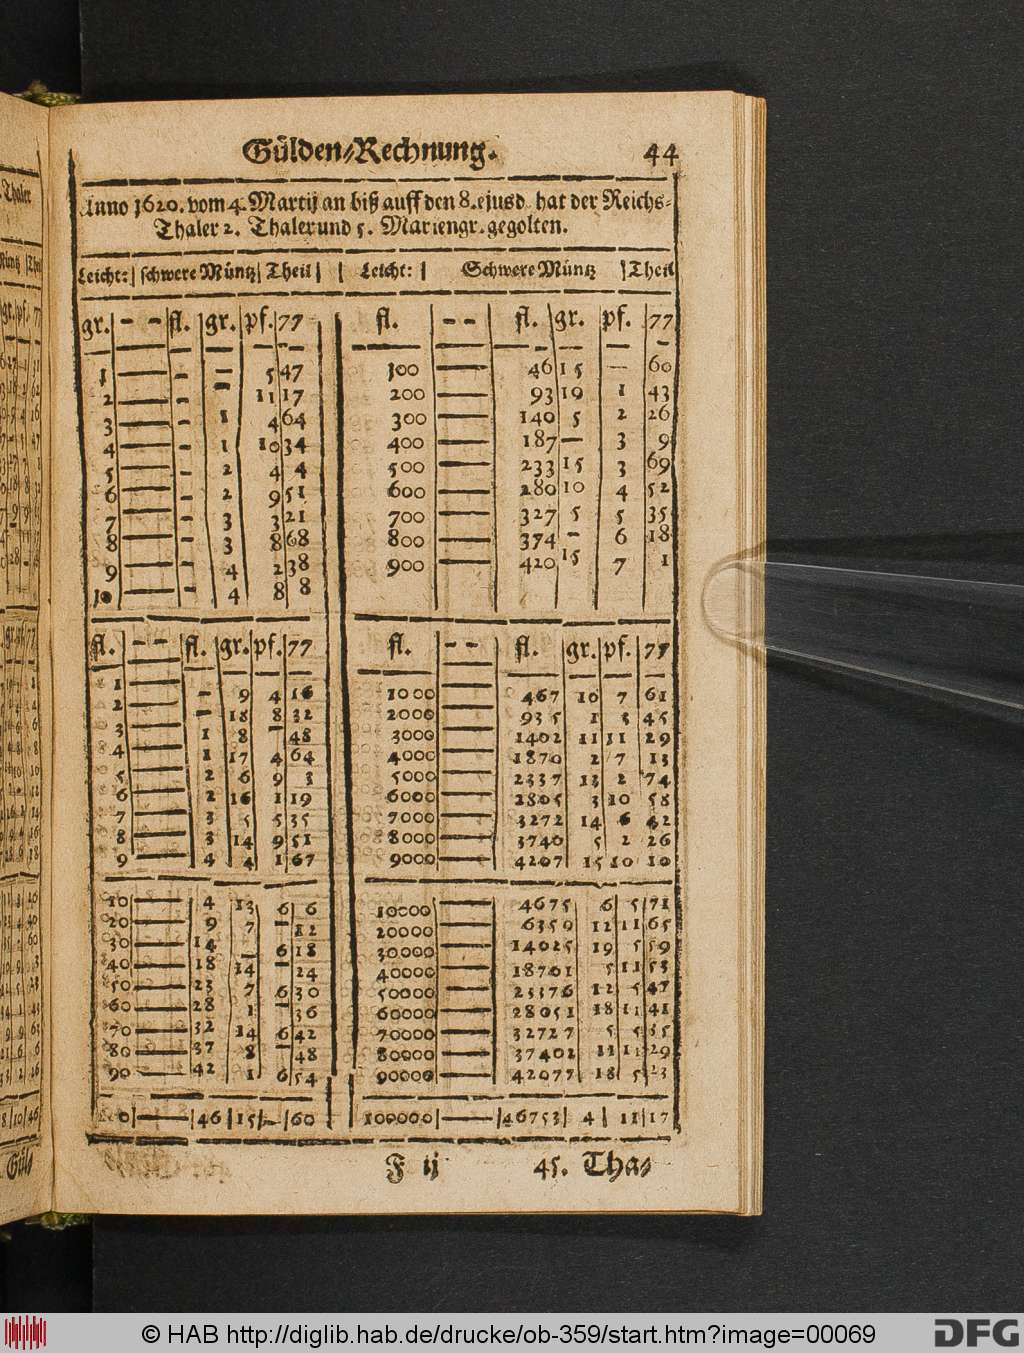 Gülden-Rechnung. 44
Anno 1620. vom 4. Martij an biß auff den 8. ejusd. hat der Reichs-
Thaler 2. Thaler und 5. Mariengr. gegolten.
Leicht: | schwere Müntz | Theil | | Leicht: | Schwere Müntz | Theil
gr. - - fl. gr. pf. 77 fl. - - fl. gr. pf. 77
1 — - — 5 47 100 — 46 15 — 60
2 — - — 11 17 200 — 93 10 1 43
3 — - 1 4 64 300 — 140 5 2 26
4 — - 1 10 34 400 — 187 — 3 9
5 — - 2 4 4 500 — 233 15 3 69
6 — - 2 9 51 600 — 280 10 4 52
7 — - 3 3 21 700 — 327 5 5 35
8 — - 3 8 68 800 — 374 - 6 18
9 — - 4 2 38 900 — 420 15 7 1
10 — - 4 8 8
fl. - - fl. gr. pf. 77 fl. - - fl. gr. pf. 77
1 — - 9 4 16 1000 — 467 10 7 61
2 — - 18 8 32 2000 — 935 1 3 45
3 — 1 8 - 48 3000 — 1402 11 11 29
4 — 1 17 4 64 4000 — 1870 2 7 13
5 — 2 6 9 3 5000 — 2337 13 2 74
6 — 2 16 1 19 6000 — 2805 3 10 58
7 — 3 5 5 35 7000 — 3272 14 6 42
8 — 3 14 9 51 8000 — 3740 5 2 26
9 — 4 4 1 67 9000 — 4207 15 10 10
10 — 4 13 6 6 10000 — 4675 6 5 71
20 — 9 7 - 12 20000 — 6350 12 11 65
30 — 14 - 6 18 30000 — 14025 19 5 59
40 — 18 14 - 24 40000 — 18701 5 11 53
50 — 23 7 6 30 50000 — 23376 12 5 47
60 — 28 1 - 36 60000 — 28051 18 11 41
70 — 32 14 6 42 70000 — 32727 5 5 35
80 — 37 8 - 48 80000 — 37402 11 11 29
90 — 42 1 6 54 90000 — 42077 18 5 23
— 46 15 - 60 100000 — 46753 4 11 17
F ij 45. Tha-
© HAB http://diglib.hab.de/drucke/ob-359/start.htm?image=00069
DFG